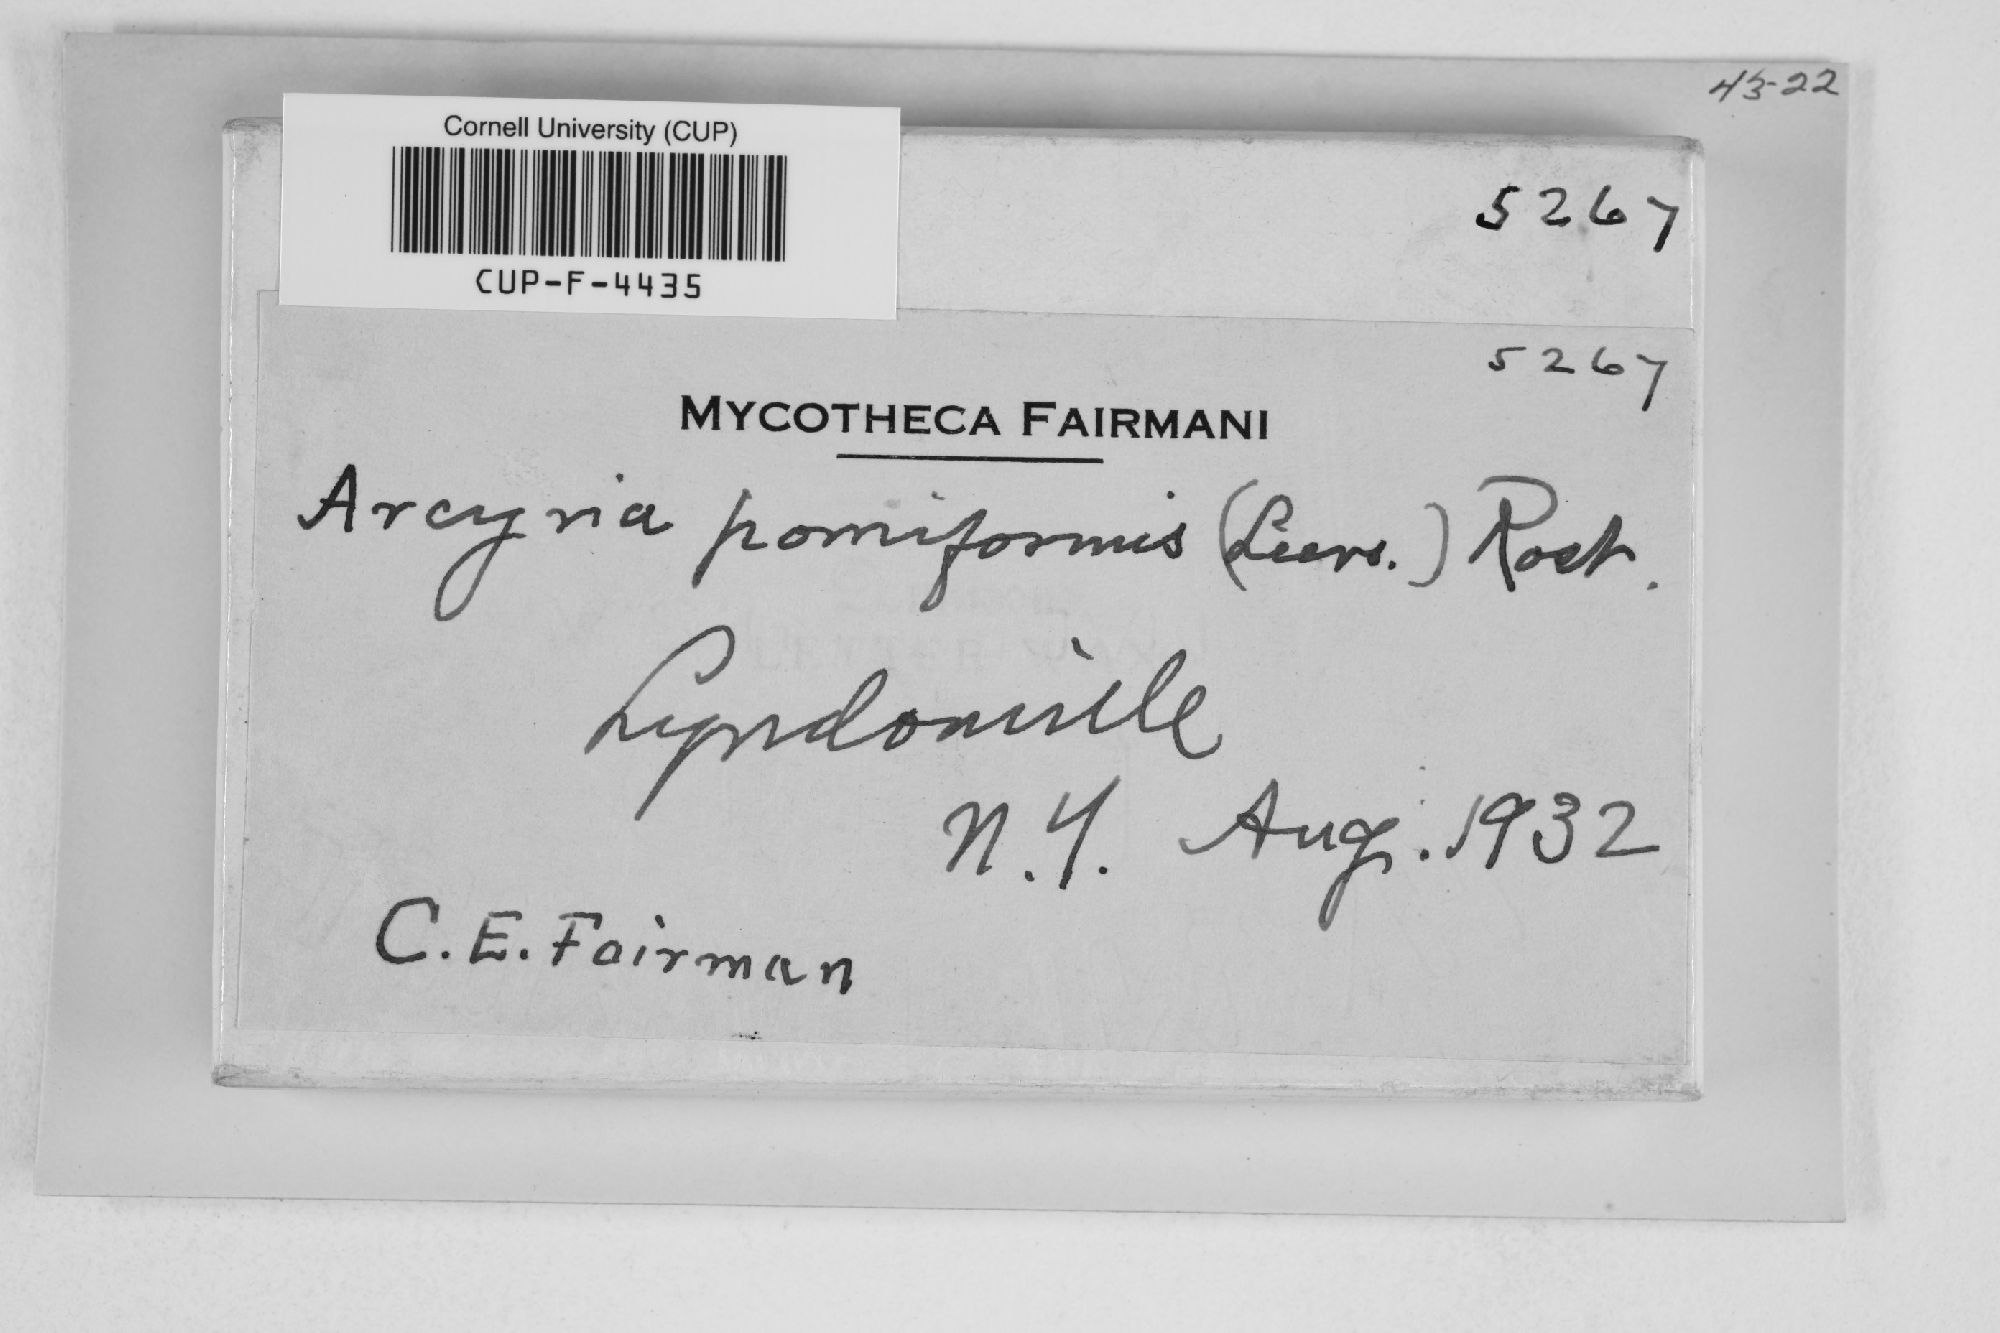 43-22
Cornell University (CUP)
CUP-F-4435
5267
5267
MYCOTHECA FAIRMANI
Arcyria pomiformis (Leers.) Rost.
Lyndonville
N.Y. Aug. 1932
C.E. Fairman